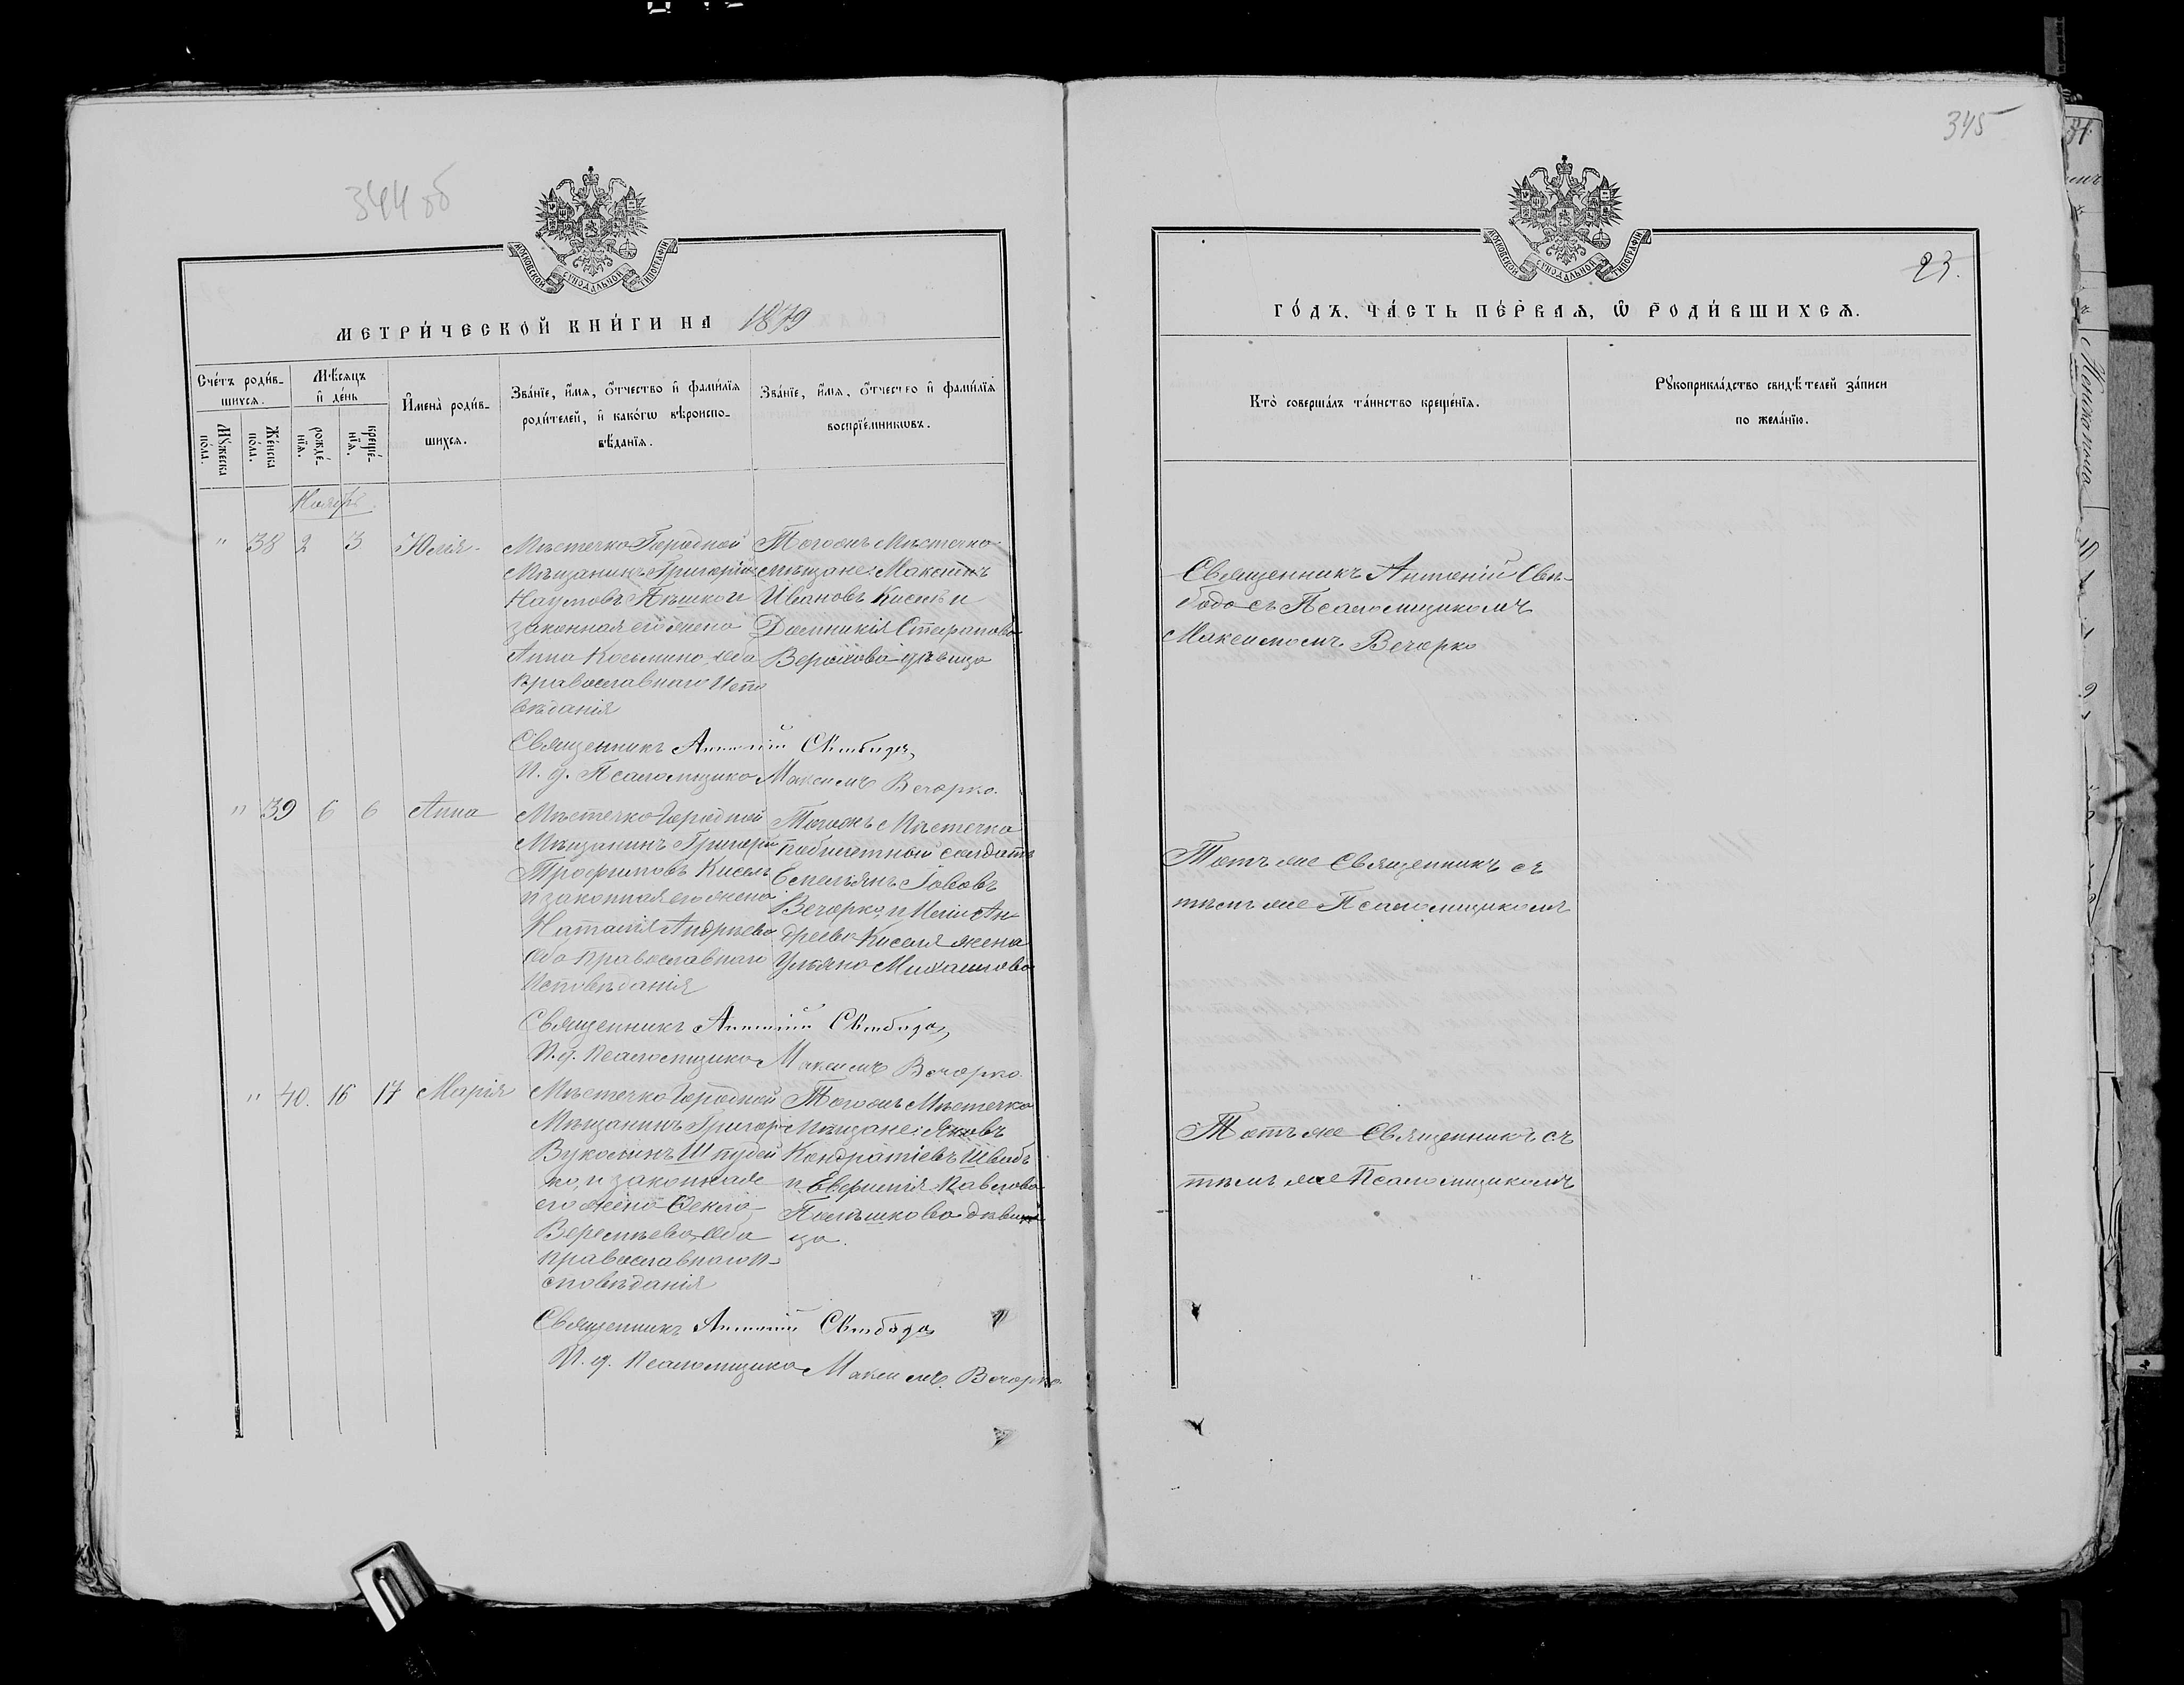 344 об
МОСКОВСКОЙ СѴНОДАЛЬНОЙ ТИПОГРАФІИ
МЕТРИ́ЧЕСКОЙ КНИ́ГИ НА 1879
Сче́тъ роди́вшихсѧ.
Мѣ́сѧцъ и҆ де́нь
И҆мена̀ роди́вшихсѧ.
Зва́нїе, и҆́мѧ, ѻ҆́тчество и҆ фамилїѧ родителей, и҆ како́гѡ вѣроисповѣ́данїѧ.
Зва́нїе, и҆́мѧ, ѻ҆́тчество и҆ фамилїѧ воспрїе́мникѡвъ.
Мꙋ́жеска по́ла.
Же́нска по́ла.
рожде́нїѧ.
креще́нїѧ.
Ноябрь.
" 38 2 3 Юлія.
Мѣстечка Городной
Мѣщанинъ Григорій
Наумовъ Пѣшко и
законная его жена
Анна Косьмина, оба
православнаго Испо
вѣданія
Тогожъ Мѣстечка
мѣщане: Максимъ
Ивановъ Кисель и
Домникія Стефанова
дѣвица
Священникъ Антоній Свобода,
И. д. Псаломщика Максимъ Вечорко.
" 39 6 6 Анна
Мѣстечка Городной
Мѣщанинъ Григорій
Трофимовъ Кисель
и законная его жена
Наталія Андреева
оба православнаго
Исповѣданія
Тогожъ Мѣстечка
солдатъ
Емельянъ Іововъ
Вечорко, и Иліи Ан-
дреева Киселя жена
Ульяна Михайлова
Священникъ Антоній Свобода,
И. д. псаломщика Максимъ Вечорко.
" 40. 16 17 Марія
Мѣстечка Городной
Мѣщанинъ Григорій
Вуколинъ Шпудей
ко, и законная
его жена Ѳекла
оба
православнаго и-
сповѣданія
Тогожъ Мѣстечка
Мѣщане: Яковъ
Кондратіевъ Швабъ
и Евфимія Павлова
дѣви
ца.
Священникъ Антоній Свобода,
И. д. псаломщика Максимъ Вечорко.
345
23.
МОСКОВСКОЙ СѴНОДАЛЬНОЙ ТИПОГРАФІИ
ГО́ДЪ, ЧА́СТЬ ПЕ́РВАѦ, Ѡ҆ РОДИ́ВШИХСѦ.
Кто̀ соверша́лъ та́инство креще́нїѧ.
Рꙋкоприкла́дство свидѣ́телей за́писи по жела́нїю.
Священникъ Антоній Сво-
бода съ Псаломщикомъ
Максимомъ Вечорко
Тотъ же Священникъ съ
тѣмъ же Псаломщикомъ
Тотъ же Священникъ съ
тѣмъ же Псаломщикомъ